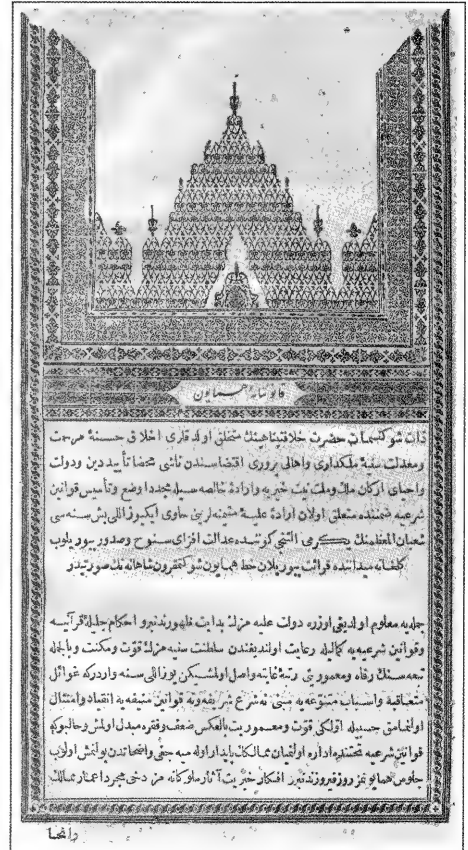 قانوننامه همایون
ذات شوکتسمات حضرت خلافتپناهینك متخلق اولدقلری اخلاق حسنۀ مرحمت
ومعدلت سنیۀ ملکداری واهالی پروری اقتضاسندن ناشی محضا تأیید دین ودولت
واحیای ارکان ملك وملت نیت خیریه وارادۀ خالصه سیله مجددا وضع وتأسیس قوانین
شرعیه ضمننده متعلق اولان ارادۀ علیۀ لرینی حاوی ایکیوز اللی بش سنه سی
شعبان المعظمنك یکرمی التنجی کوننده عدالت افزای سنوح وصدور بیوریلوب
کلخانه میداننده قرائت بیوریلان خط همایون شوکتمقرون شاهانه نك صورتیدر
جمله یه معلوم اولدیغی اوزره دولت علیه مزك بدایت ظهورندنبرو احکام جلیلۀ قرآنیه
وقوانین شرعیه یه کمالیله رعایت اولندیغندن سلطنت سنیه مزك قوت ومکنت وبالجمله
تبعه سنك رفاه ومعموریتی رتبۀ غایته واصل اولمشیکن یوز اللی سنه واردرکه غوائل
متعاقبه واسباب متنوعه یه مبنی نه شرع شریفه ونه قوانین منیفه یه انقیاد وامتثال
اولنمامق حسبیله اولکی قوت ومعموریت بالعکس ضعف وفقره مبدل اولمش وحالبوکه
قوانین شرعیه تحتنده اداره اولنمیان ممالکك پایدار اوله میه جغی واضحاتدن بولنمش اولوب
جلوس همایونمز روز فیروزندنبرو افکار خیریت آثار ملوکانه مز دخی مجرد اعمار ممالك